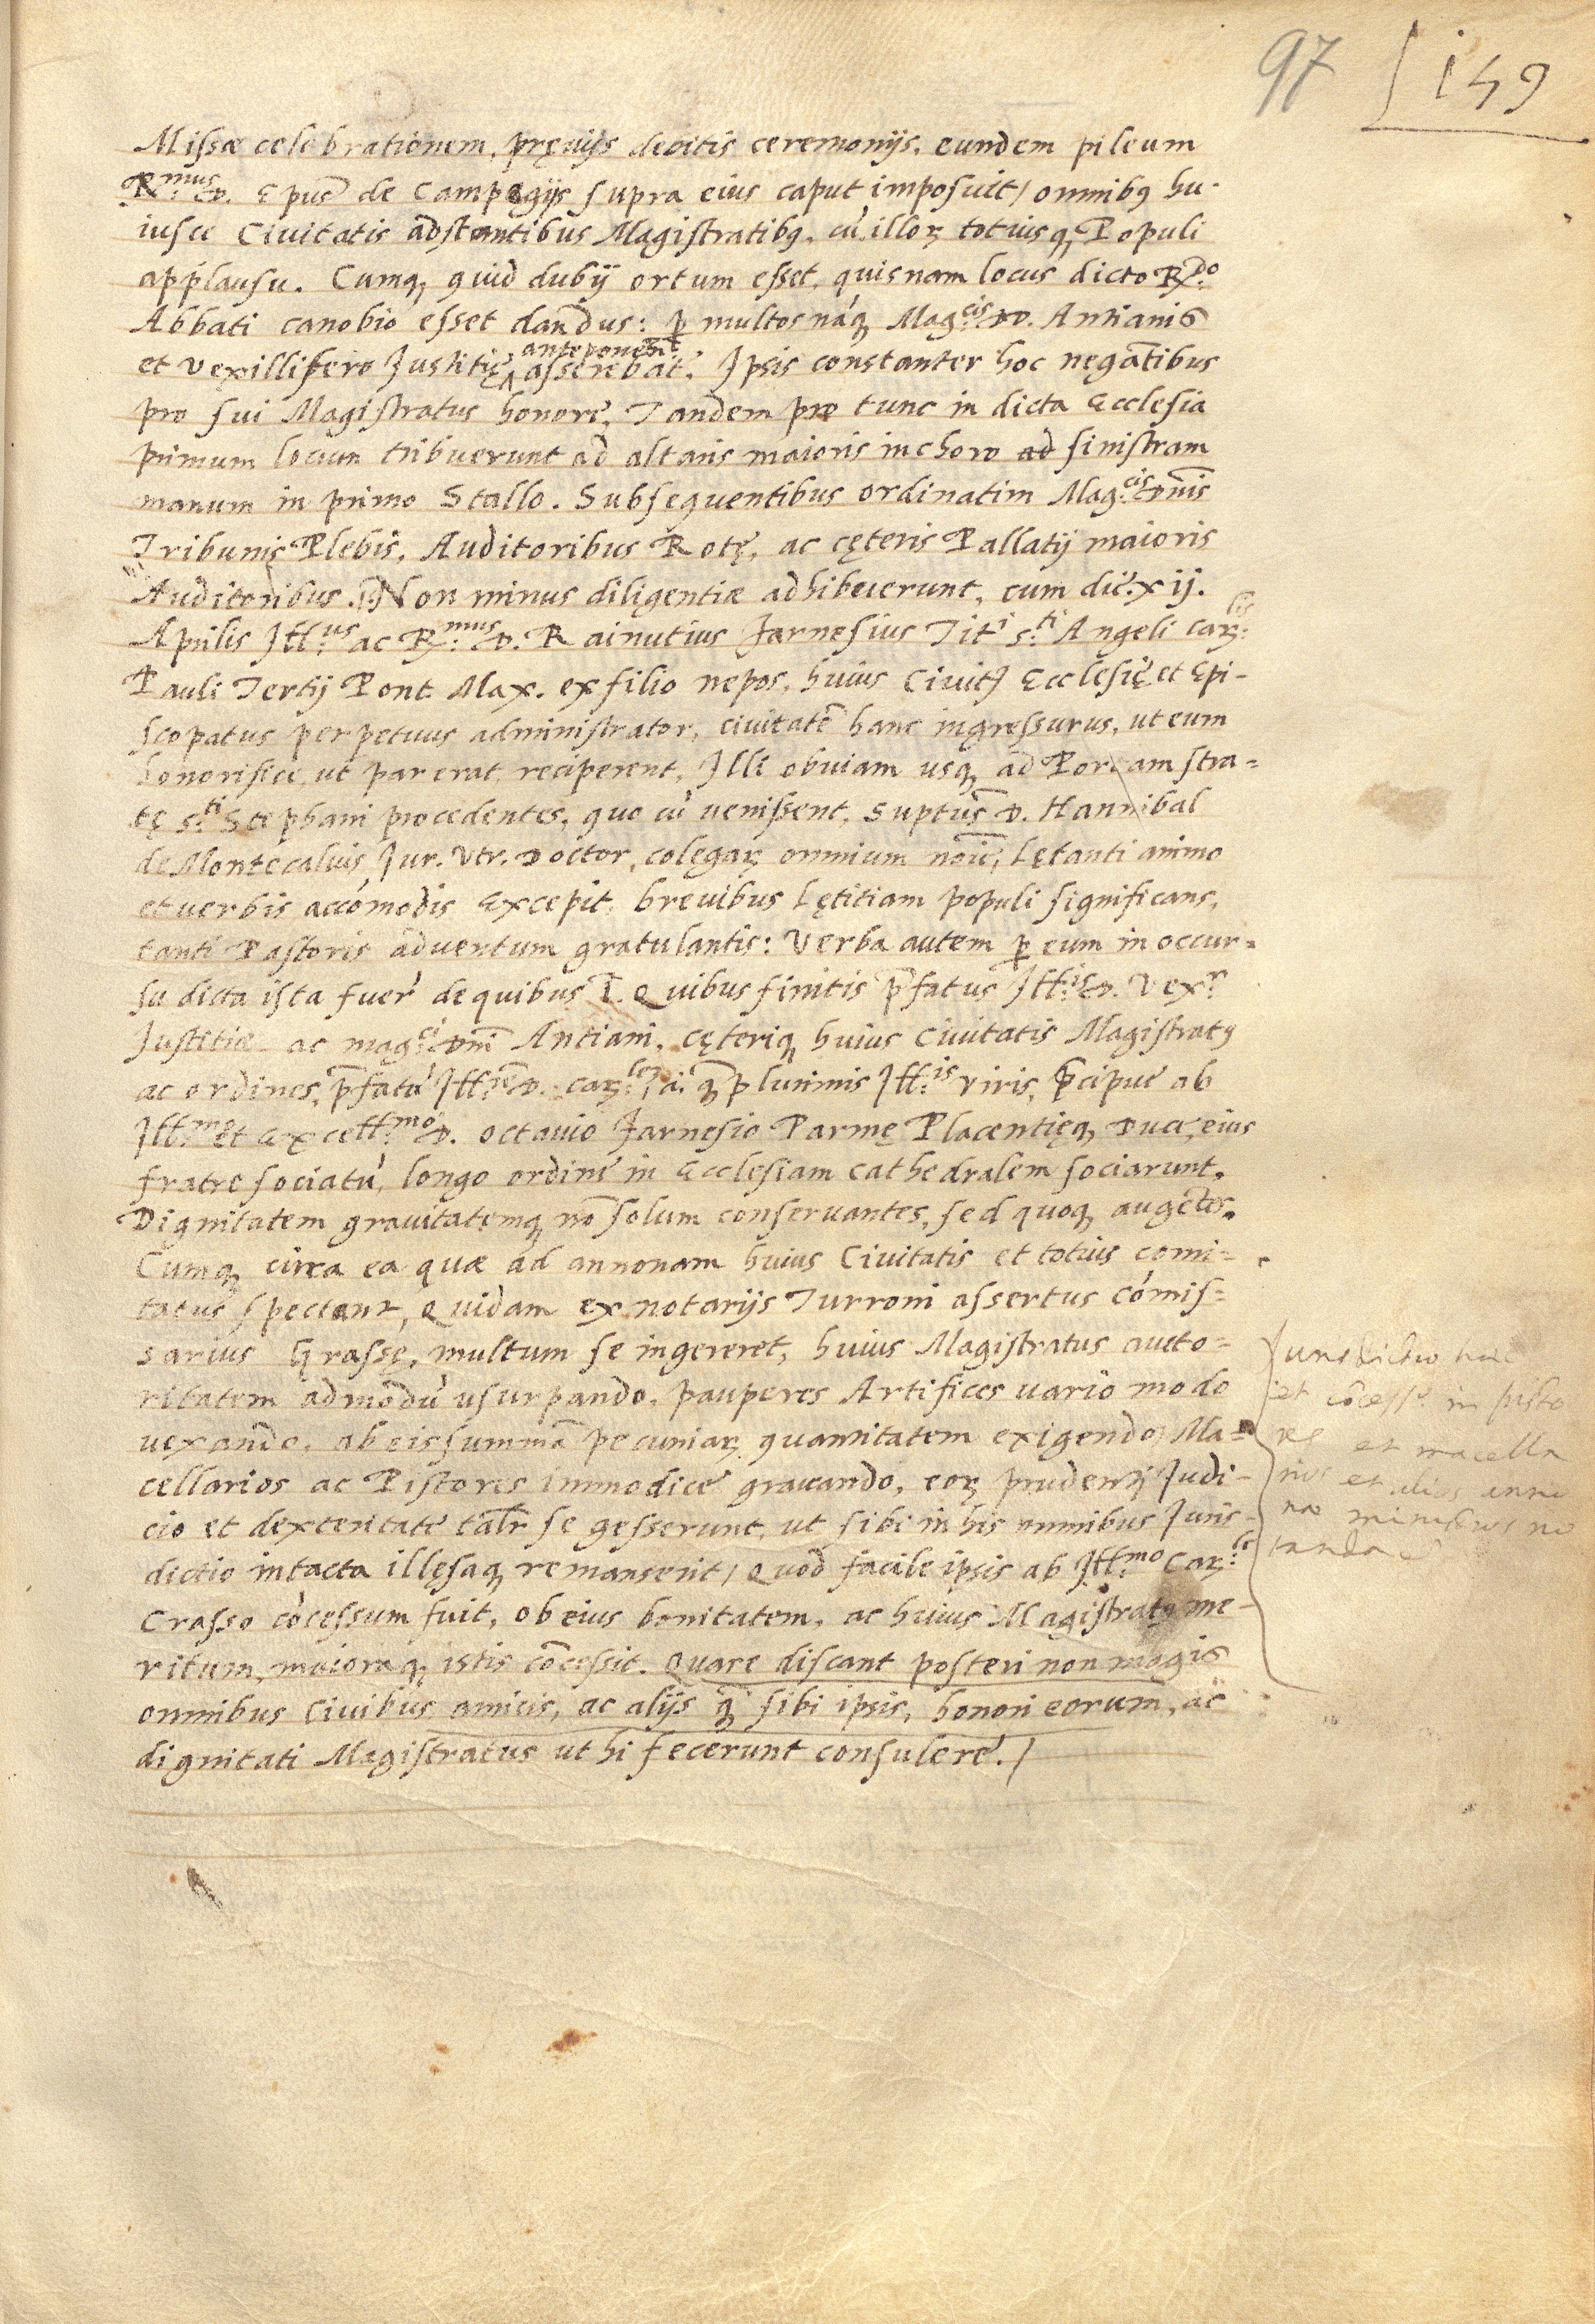 97 149
Missæ celebrationem, pręuijs debitis ceremonijs, eundem pileum
R.mus D. Epus̄ de Campegijs supra eius caput imposuit / omnibꝯ hu-
iusce Ciuitatis adstantibus Magistratibꝯ, cū illoꝝ totiusqꝫ Populi
applausu. Cumqꝫ quid dubij ortum esset, quisnam locus dicto R.do
Abbati canobio esset dandus: ꝑ multos nāqꝫ Mag.cis DD. Antianis
et Vexillifero Justitię anteponēdū asserebat. Ipsis constanter hoc negātibus
pro sui Magistratus honore, Tandem pro tunc in dicta Ecclesia
primum locum tribuerunt ad altaris maioris in choro ad sinistram
manum in primo Stallo. Subsequentibus ordinatim Mag.cis Dnīs
Tribunis Plebis, Auditoribus Rotę, ac cęteris Pallatij maioris
Auditoribus. Non minus diligentiæ adhibuerunt, cum die xij.
Aprilis Ill.us ac R.mus D. Rainutius Farnesius Tit.i S.ti Angeli Car.lis
Pauli Tertij Pont. Max. ex filio nepos, huius Ciuit. Ecclesię et Epi-
scopatus perpetuus administrator, ciuitatē hanc ingressurus, ut eum
honorifice, ut par erat, reciperent, Illi obuiam usqꝫ ad Portam stra=
tę S.ti Stephani procedentes, quo cū uenissent, Suptus̄ D. Hannibal
de Montecaluis Jur. Vtr. Doctor, colegaꝝ omnium noīe, lętanti animo
et uerbis accōmodis Excepit, breuibus lętitiam populi significans,
tanti Pastoris aduentum gratulantis: Verba autem ꝑ eum in occur=
su dicta ista fuer' de quibus I. Quibus finitis p̄fatus Ill.is D. Vex.r
Justitiæ ac mag.ci Dnī Antiani, cęteriqꝫ huius Ciuitatis Magistratꝯ
ac ordines, p̄fatū Ill.m D. Car.lem, a qꝫ plurimis Ill.is viris, p̄cipue ab
Ill.mo et Excell.mo D. Octauio Farnesio Parmę Placentięqꝫ Duce, eius
fratre sociatū, longo ordine in Ecclesiam Cathedralem sociarunt,
Dignitatem grauitatemqꝫ nō solum conseruantes, sed quoqꝫ augētes.
Cumqꝫ circa ea quæ ad annonam huius Ciuitatis et totius comi=
tatus spectant, Quidam ex notarijs Turroni assertus Cōmis=
sarius Grassę, multum se ingereret, huius Magistratus aucto=
ritatem admodū usurpando, pauperes Artifices uario modo
uexando, ab eis summā pecuniaꝝ quantitatem exigendo, Ma=
cellarios ac Pistores immodice grauando, eoꝝ prudentj Judi-
cio et dexteritate talr̄ se gesserunt, ut sibi in his omnibus Juris-
dictio intacta illęsaqꝫ remanserit / Quod facile ipsis ab Ill.mo Car.le
Crasso cōcessum fuit, ob eius bonitatem, ac huius Magistratꝯ me-
ritum, maioraqꝫ istis cōcessit. Quare discant posteri non magis
omnibus Ciuibus amicis, ac alijs qꝫ sibi ipsis, honori eorum, ac
dignitati Magistratus ut hi fecerunt consulere. /
Jurisdictio
et cōcess.o in pisto
res et macella
rios et alios anno
næ ministros no
tanda